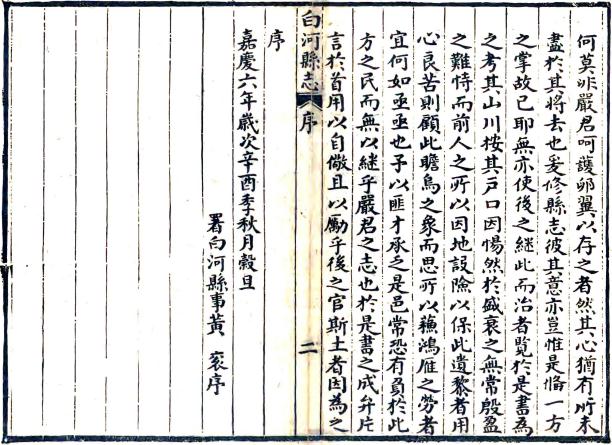 何莫非嚴君呵護卵翼以存之者然其心猶有所未
盡於其將去也爰修縣志彼其意亦豈惟是備一方
之掌故已耶無亦使後之繼此而治者覽於是書為
之考其山川按其戸口因惕然於盛衰之無常殷盈
之難恃而前人之所以因地設險以保此遺黎者用
心良苦則顧此瞻烏之象而思所以蘇鴻雁之勞者
宜何如亟亟也予以匪才承乏是邑常恐有負於此
方之民而無以繼乎嚴君之志也於是書之成弁片
言於首用以自儆且以勵乎後之官斯土者因為之
白河縣志 序 二
序
嘉慶六年歲次辛酉季秋月穀旦
署白河縣事黃 衮序